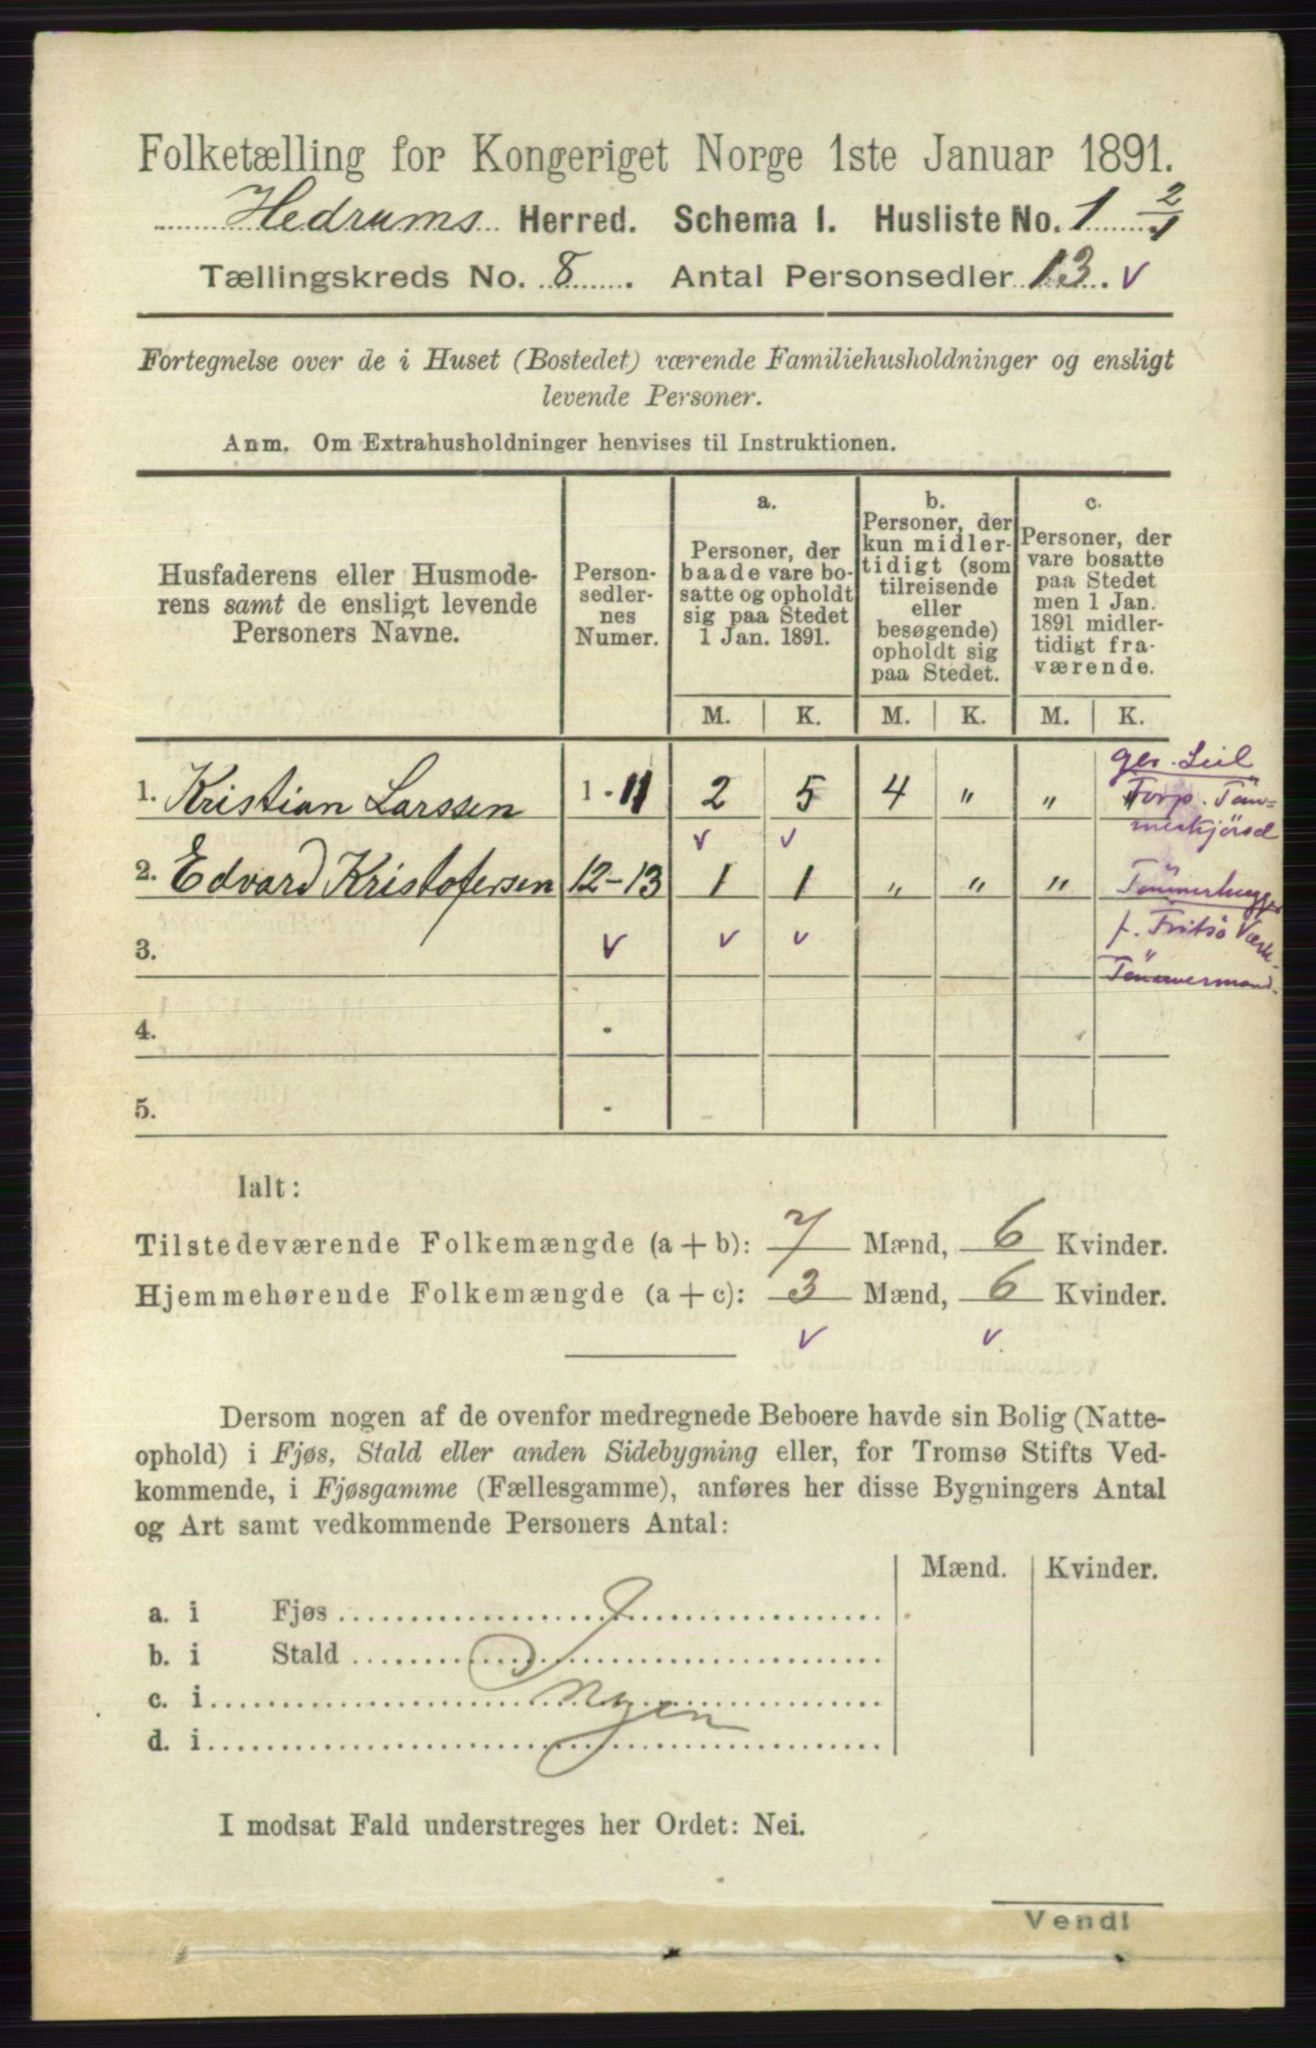 Folketælling for Kongeriget Norge 1ste Januar 1891.
Hedrums Herred. Schema I. Husliste No. 1 2/1
Tællingskreds No. 8. Antal Personsedler 13. v
Fortegnelse over de i Huset (Bostedet) værende Familiehusholdninger og ensligt
levende Personer.
Anm. Om Extrahusholdninger henvises til Instruktionen.
Husfaderens eller Husmode-
rens samt de ensligt levende
Personers Navne.
Person-
sedler-
nes
Numer.
a.
Personer, der
baade vare bo-
satte og opholdt
sig paa Stedet
1 Jan. 1891.
b.
Personer, der
kun midler-
tidigt (som
tilreisende
eller
besøgende)
opholdt sig
paa Stedet.
c.
Personer, der
vare bosatte
paa Stedet
men 1 Jan.
1891 midler-
tidigt fra-
værende.
M. K. M. K. M. K.
1. Kristian Larssen 1-11 2 5 4 " " "
v v
2. Edvard Kristofersen 12-13 1 1 " " "
3. v v v
4. -
5. -
Tømmerhugger
f. Fritsø Værk
Tømmermand.
Ialt:
Tilstedeværende Folkemængde (a + b): 7 Mænd, 6 Kvinder.
Hjemmehørende Folkemængde (a + c): 3 Mænd, 6 Kvinder.
v v
Dersom nogen af de ovenfor medregnede Beboere havde sin Bolig (Natte-
ophold) i Fjøs, Stald eller anden Sidebygning eller, for Tromsø Stifts Ved-
kommende, i Fjøsgamme (Fællesgamme), anføres her disse Bygningers Antal
og Art samt vedkommende Personers Antal:
Mænd. Kvinder.
a. i Fjøs
b. i Stald
c. i Ingen
d. i
I modsat Fald understreges her Ordet: Nei.
Vend!